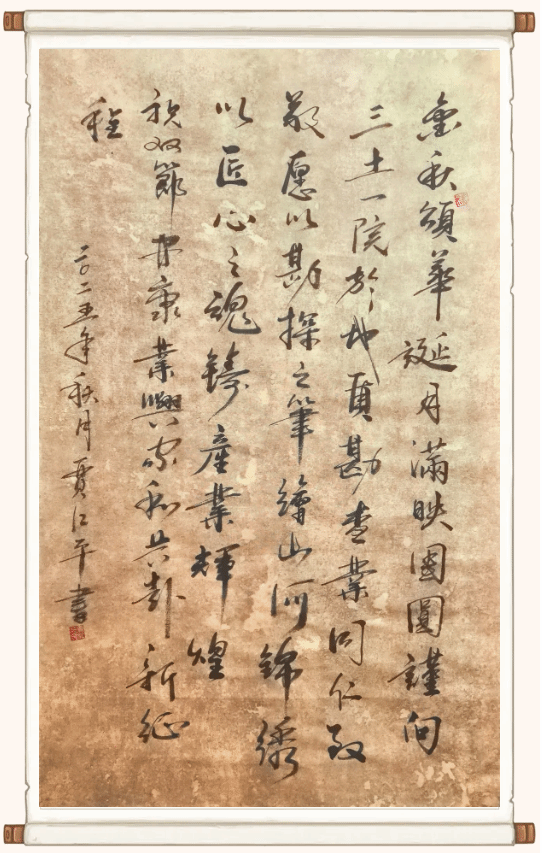 金秋頌華誕月滿映團圓謹向
三土一院於地質勘查業同仁致
敬愿以勘探之筆繪山河錦綉
以匠心之魂鑄產業輝煌
祝双節安康業興家和共赴新征
程
二〇二五年秋月賈江平書